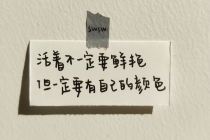 活着不一定要鲜艳
但一定要有自己的颜色